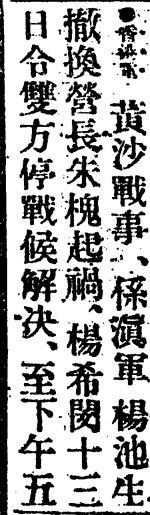 黃沙戰事、係滇軍楊池生
撤換營長朱槐起禍、楊希閔十三
日令雙方停戰候解決、至下午五